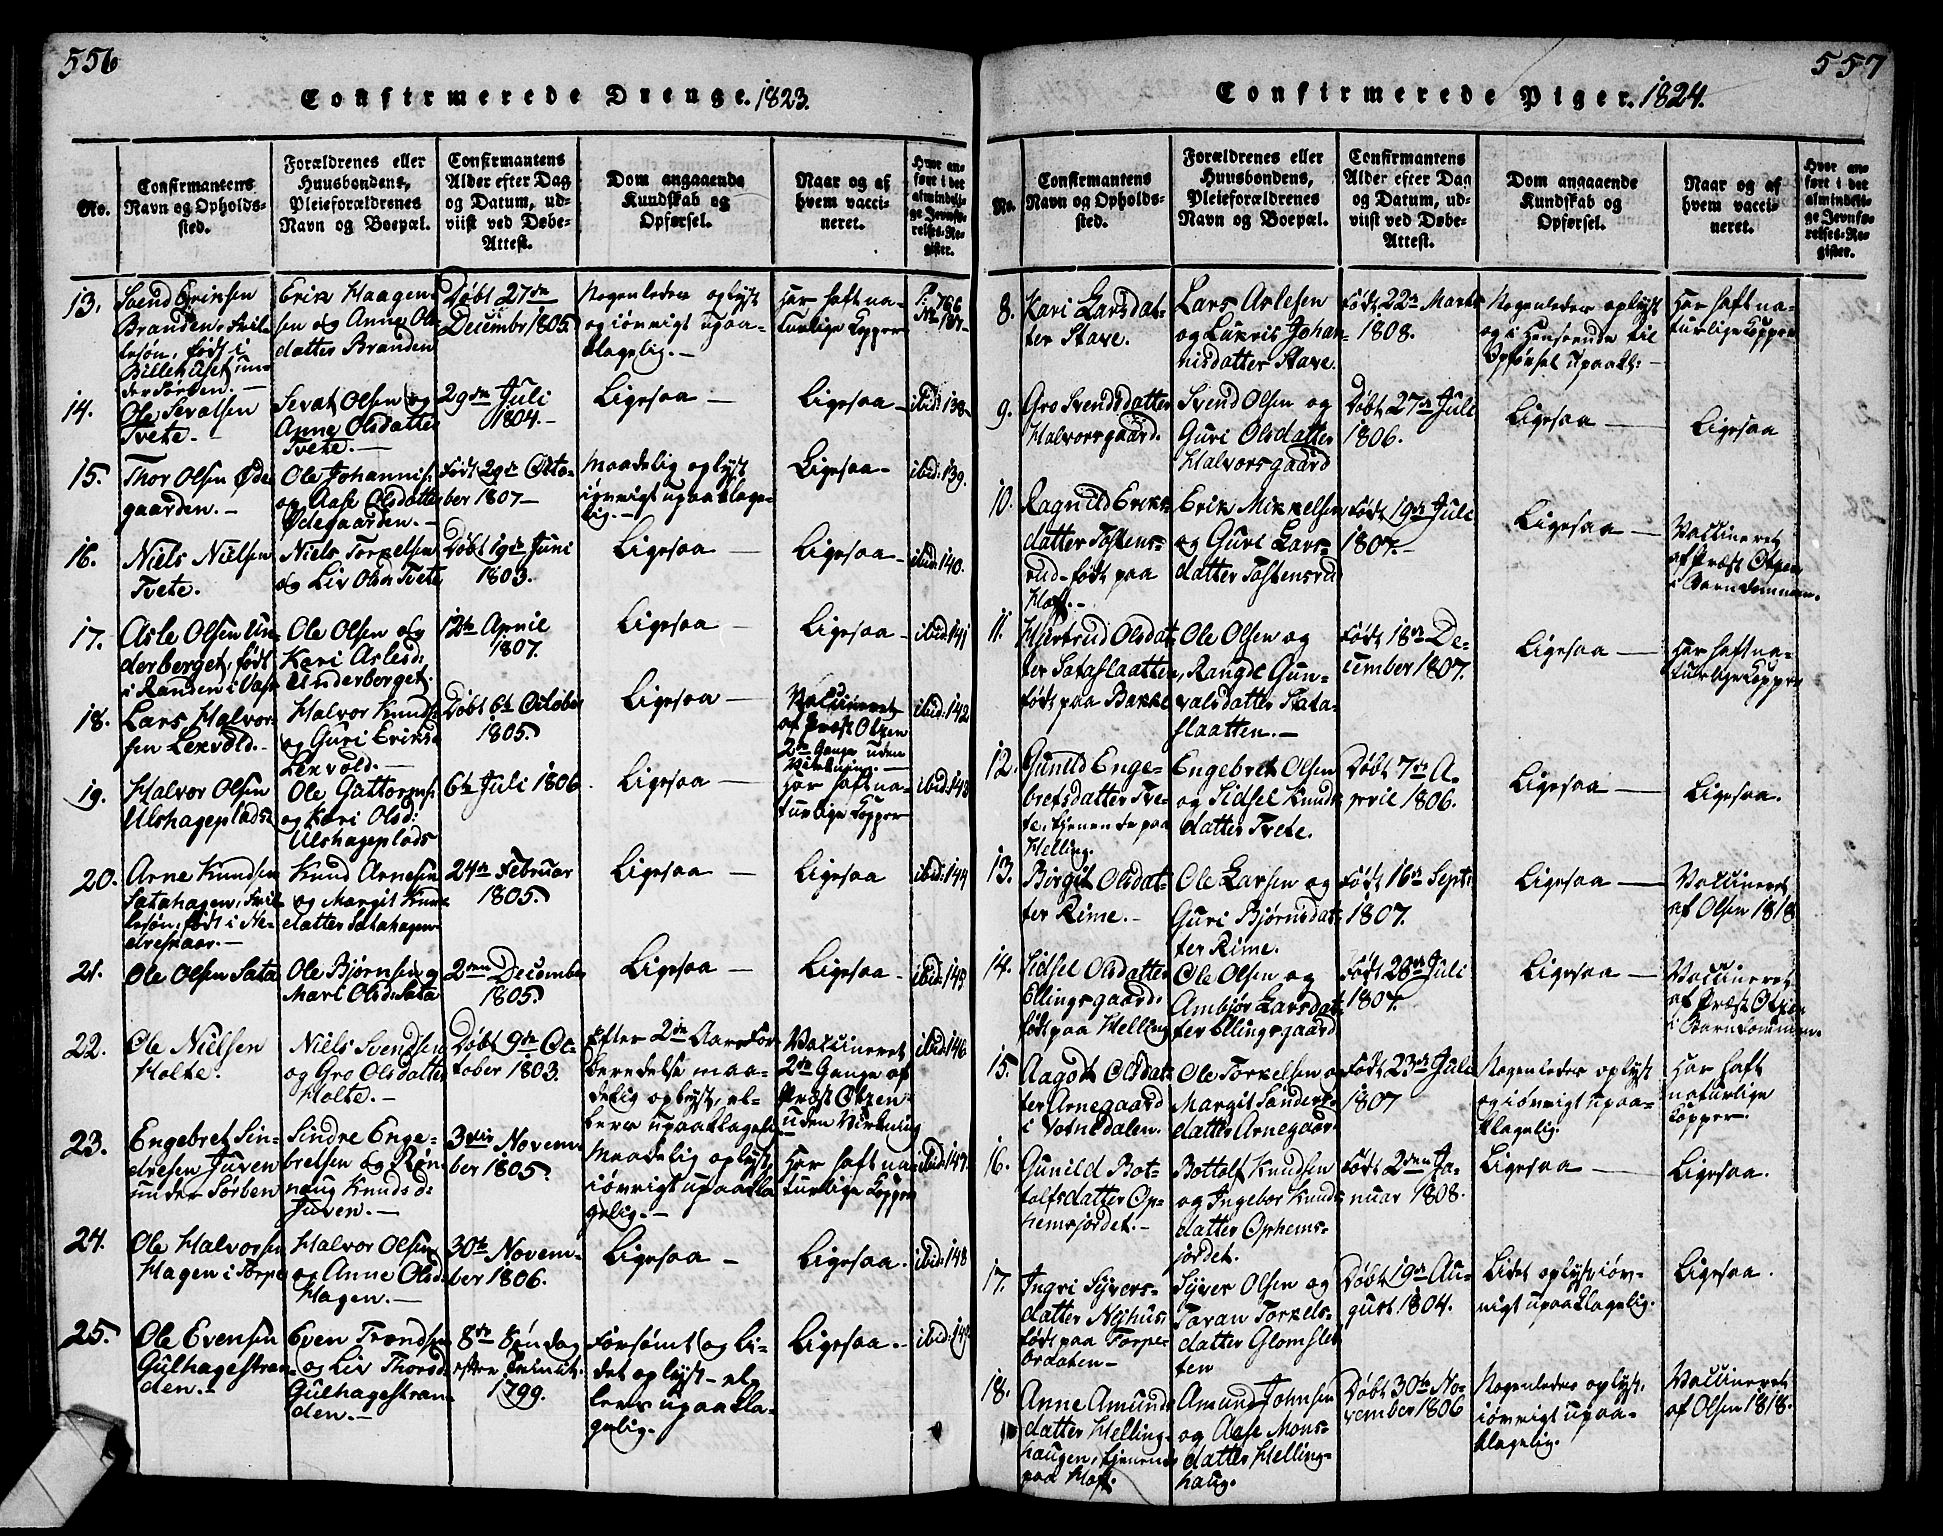 556
Confirmerede Drenge. 1823.
No.
Confirmantens
Navn og Opholds-
sted.
Forældrenes eller
Huusbondens,
Pleieforældrenes
Navn og Boepæl.
Confirmantens
Alder efter Dag
og Datum, ud-
viist ved Døbe-
Attest.
Dom angaaende
Kundskab og
Opførsel.
Naar og af
hvem vacci-
neret.
Hvor an-
ført i det
almindeli-
ge Jevnfø-
relses-Re-
gister.
13.
Svend Eriksen
Branden,
søn, født i
Erik Haagen-
sen og Anne Ols-
datter Branden
Døbt 27de
Decembr 1805
Nogenledes oplyst
og iøvrigt upaa-
klagelig.
Har haft na-
turlige Kopper
P: 766
No 137
14.
Ole Sevalsen
Tvete.
Seval Olsen og
Anne Olsdatter
Tvete.
29de Juli
1804.
Ligesaa
Ligesaa
ibid: 138
15.
Thor Olsen Øde-
gaarden.
Ole Johannis:
og Aase Olsdatter
Ødegaarden.
Født 29de Octo-
ber 1807
Maadelig oplyst
iøvrigt upaaklage-
lig.
Ligesaa
ibid: 139.
16.
Niels Nielsen
Tvete.
Niels Torkelsen
og Liv Olsd: Tvete
Døbt 19de Juni
1803.
Ligesaa
Ligesaa
ibid: 140.
17.
Asle Olsen Un-
derberget, født
i Randen i
Ole Olsen og
Kari Aslesd:
Underberget.
12te April
1807.
Ligesaa
Ligesaa
ibid: 141
18.
Lars Halvor-
sen Lexvold.
Halvor Knuds:
og Guri Eriksd:
Lexvold.
Døbt 6te October
1805.
Ligesaa
Vaccineret
af Præst Otzen
2de Gange uden
Virkning.
ibid: 142
19.
Halvor Olsen
Ulshageplads
Ole Guttorms:
og Kari Olsd:
Ulshageplads
6te Juli 1806
Ligesaa
Har haft na-
turlige Kopper
ibid: 143
20.
Arne Knudsen
Satahagen,
søn, født i Ne-
dreskaar.
Knud Arnesen
og Margit Knuds
datter Satahagen
24de Februar
1805.
Ligesaa
Ligesaa
ibid: 144
21.
Ole Olsen Sata
Ole Bjørnsen og
Mari Olsd: Sata
2den December
1805.
Ligesaa
Ligesaa
ibid: 145
22.
Ole Nielsen
Holte.
Niels Svendsen
og Gro Olsdatter
Holte.
Døbt 9de Oc-
tober 1803.
Efter 2de Aars For-
beredelse maa-
delig oplyst, el-
lers upaaklagelig
Vaccineret
2de Gange af
Præst Otzen
uden Virkning
ibid: 146
23.
Engebret Sin-
dresen Juven
under Sørben
Sindre Enge-
bretsen og Røn-
naug Knudsd:
Juven.
3die Novem-
ber 1805.
Maadelig oplyst,
iøvrigt upaakla-
gelig.
Har haft na-
turlige Kopper
ibid: 147
24.
Ole Halvorsen
Hagen i Torpe
Halvor Olsen
og Anne Olsd:
Hagen.
30te Novem-
ber 1806.
Ligesaa
Ligesaa.
ibid: 148
25.
Ole Evensen
Gulhagestran-
den.
Even Trondsen
og Liv Thorsd:
Gulhagestran-
den.
8de Søndag
efter Trinit:
1799.
Forsømt og li-
det oplyst, el-
lers upaakla-
gelig.
Ligesaa.
ibid: 149
557
Confirmerede Piger. 1824.
No.
Confirmantens
Navn og Opholds-
sted.
Forældrenes eller
Huusbondens,
Pleieforældrenes
Navn og Boepæl.
Confirmantens
Alder efter Dag
og Datum, ud-
viist ved Døbe-
Attest.
Dom angaaende
Kundskab og
Opførsel.
Naar og af
hvem vacci-
neret.
Hvor an-
ført i det
almindeli-
ge Jevnfø-
relses-Re-
gister.
8.
Kari Larsdat-
ter Stave.
Lars Aslesen
og Lukris Johan-
nisdatter Stave.
Født 22de Marts
1808.
Nogenledes oplyst
og i Henseende til
Opførsel upaakl:
Har haft na-
turlige Kopper
9.
Gro Svendsdatter
Halvorsgaard.
Svend Olsen og
Guri Olsdatter
Halvorsgaard
Døbt 27de Juli
1806.
Ligesaa
Ligesaa
10.
Ragnild Eriks-
datter Tostens-
rud, født paa
Hoft.
Erik Mikkelsen
og Guri Lars-
datter Tostensrud
Født 19de Juli
1807.
Ligesaa
Vaccineret
af Præst Otzen
i Barndommen.
11.
Kjertrud Olsdat-
ter Sataslaatten,
født paa Bakke
Ole Olsen og
Rangdi Gun-
valsdatter Sata-
slaatten.
Født 18de De-
cember 1807.
Ligesaa
Har haft na-
turlige Kopper
12.
Gunild Enge-
bretsdatter Tve-
te, tjenende paa
Helling.
Engebret Olsen
og Sidsel Knuds-
datter Tvete.
Døbt 7de A-
pril 1806.
Ligesaa
Ligesaa.
13.
Birgit Olsdat-
ter Rime.
Ole Larsen og
Guri Bjørnsdat-
ter Rime.
Født 16de Sept:
1807.
Ligesaa
Vaccineret
af Olsen 1818
14.
Sidsel Olsdatter
Ellingsgaard.
født paa Helling
Ole Olsen og
Ambjør Larsdat-
ter Ellingsgaard
Født 28de Juli
1807.
Ligesaa
Vaccineret
af Præst Otzen
i Barndommen
15.
Aagot Olsdat-
ter Arnegaard
i Votnedalen.
Ole Torkelsen og
Margit Sanders-
datter Arnegaard
Født 23de Juli
1807
Nogenledes oplyst
og iøvrigt upaa-
klagelig.
Har haft
naturlige
Kopper.
16.
Gunild Bot-
tolfsdatter Op-
hemsjordet.
Bottolf Knudsen
og Ingebor Knuds
datter Ophems-
jordet.
Født 2den Ja-
nuar 1808.
Ligesaa
Ligesaa.
17.
Ingri Syvers-
datter Nyhus,
født paa Torpe-
Syver Olsen og
Taran Torkels-
datter Glomslet-
ten
Døbt 19de Au-
gust 1804.
Lidet oplyst, iøv-
rigt upaaklagelig.
Ligesaa.
18.
Anne Amunds
datter Helling-
haugen, tjenende
paa Hoft.
Amund Johnsen
og Aase Mons-
datter Helling-
haug.
Døbt 30te No-
vember 1806
Nogenledes oplyst,
iøvrigt upaa-
klagelig.
Vaccineret
af Olsen 1818.